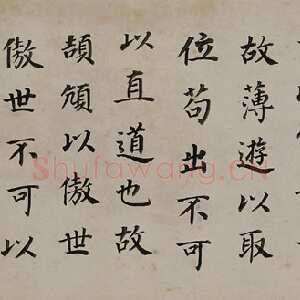 故薄遊以取
位苟出不可
以直道也故
頡頏以傲世
傲世不可以
Shufawang.CN